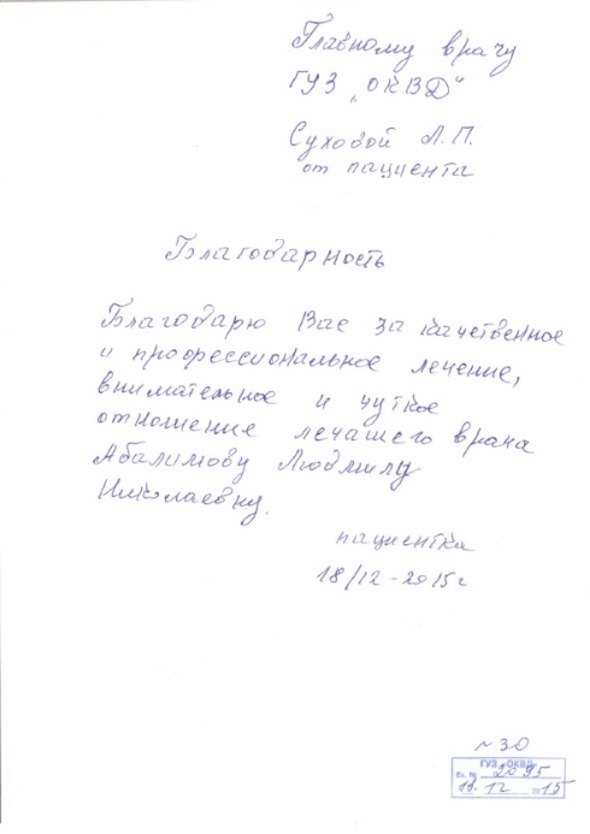 Главному врачу
ГУЗ „ОКВД"
Суховой Л.П.
от пациента
Благодарность
Благодарю Вас за качественное
и профессиональное лечение,
внимательное и чуткое
отношение лечащего врача
Абалимову Людмилу
Николаевну.
пациентка
18/12-2015г
~30
ГУЗ «ОКВД»
Вх. № 2095
12 2015